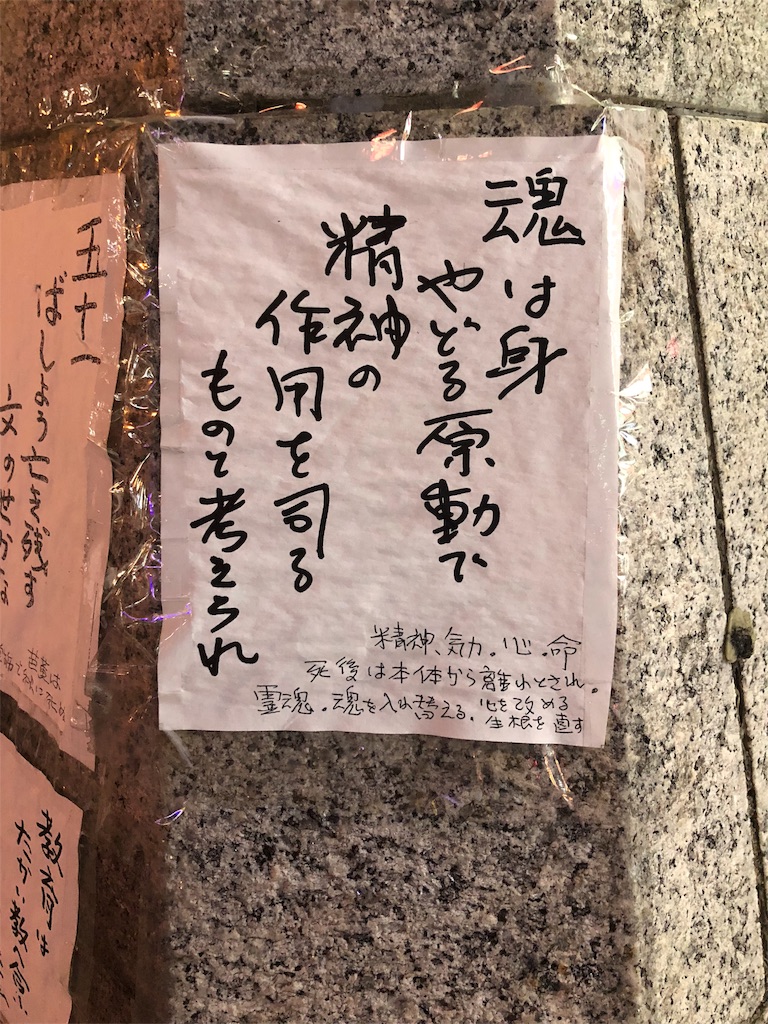 魂は身
やどる原動で
精神の
作用を司る
ものと考えられ
精神、気力.心.命
死後は本体から離れとされ.
霊魂.魂を入れ替える.心を改める
性根を直す
五十一
ばしょう亡き残す
教育は